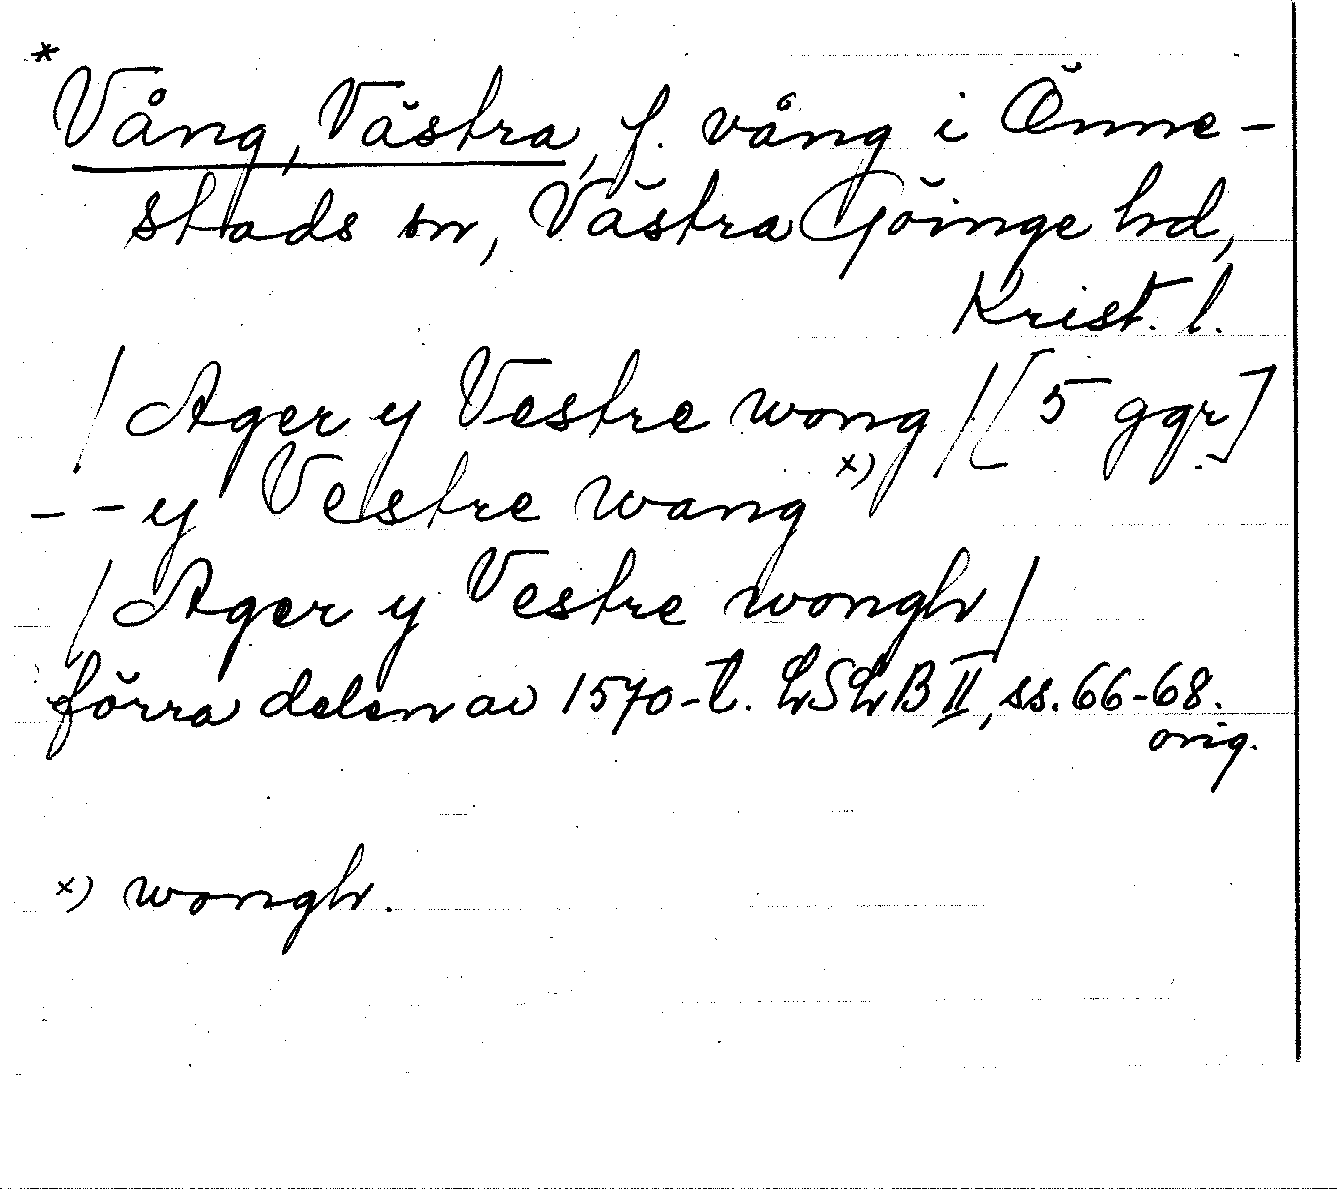 *
Vång, Västra, f. vång i Önne-
stads sn, Västra Göinge hd,
Krist. l.
/ Ager y Vestre wong / [5 ggr]
-- y Vestre wang x)
/ Ager y Vestre wongh /
förra delen av 1570-t. LSLB II, ss. 66-68.
orig.
x) wongh.